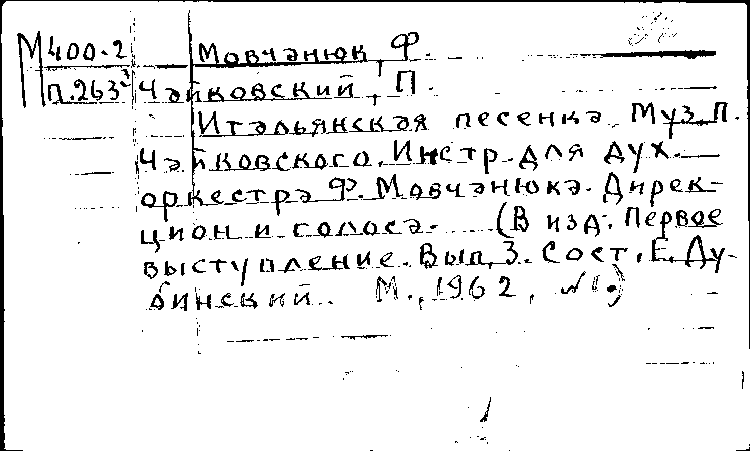 М400-2 Мовчанюк, Ф.
п.263³ Чайковский, П.
Итальянская песенка. Муз. П.
Чайковского. Инстр. для дух.
оркестра Ф. Мовчанюка. Дирек-
цион и голоса. (В изд: Первое
выступление. Вып. 3. Сост. Е. Ду-
бинский. М., 1962, №1.)